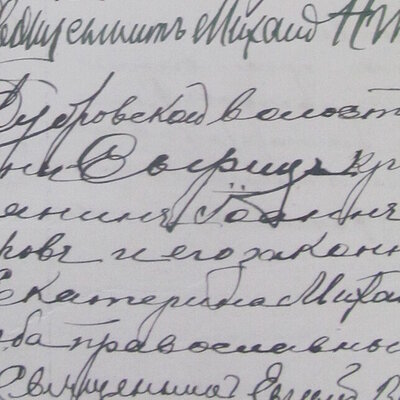 Священникъ Михаил Ни
Дубровской волост
ни Сырицъ кр
янинъ Іоаннъ
ровъ и его законн
Екатерина Миха
оба православны
Священникъ